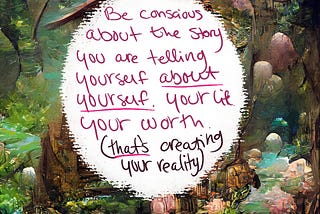 Be conscious
about the story
you are telling
yourself about
yourself. Your life
Your worth.
(that's creating
your reality)